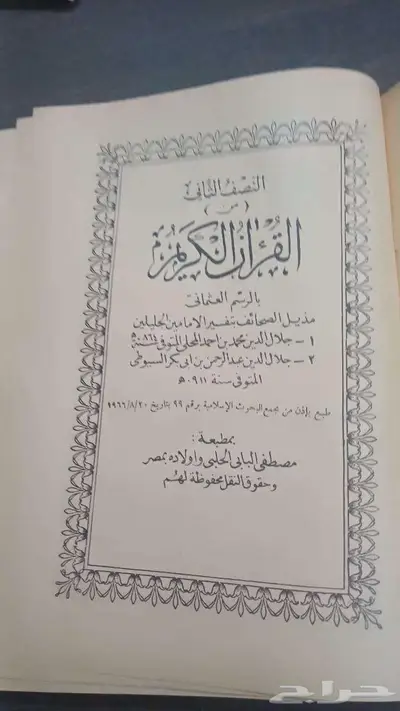 النصف الثاني
(من)
القرآن الكريم
بالرسم العثماني
مذيل الصحائف بتفسير الإمامين الجليلين
١ - جلال الدين محمد بن احمد المحلي المتوفى سنة ٨٦٤ هـ
٢ - جلال الدين عبد الرحمن بن ابي بكر السيوطي
المتوفى سنة ٩١١ هـ
طبع بإذن من مجمع البحوث الإسلامية برقم ٩٩ بتاريخ ١٩٦٦/٨/٢٠
بمطبعة :
مصطفى البابي الحلبي واولاده بمصر
وحقوق النقل محفوظة لهم
حراج